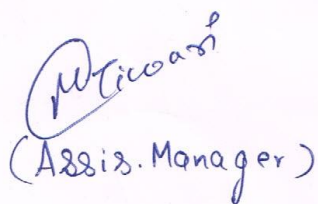 MTiwari
(Assis. Manager)